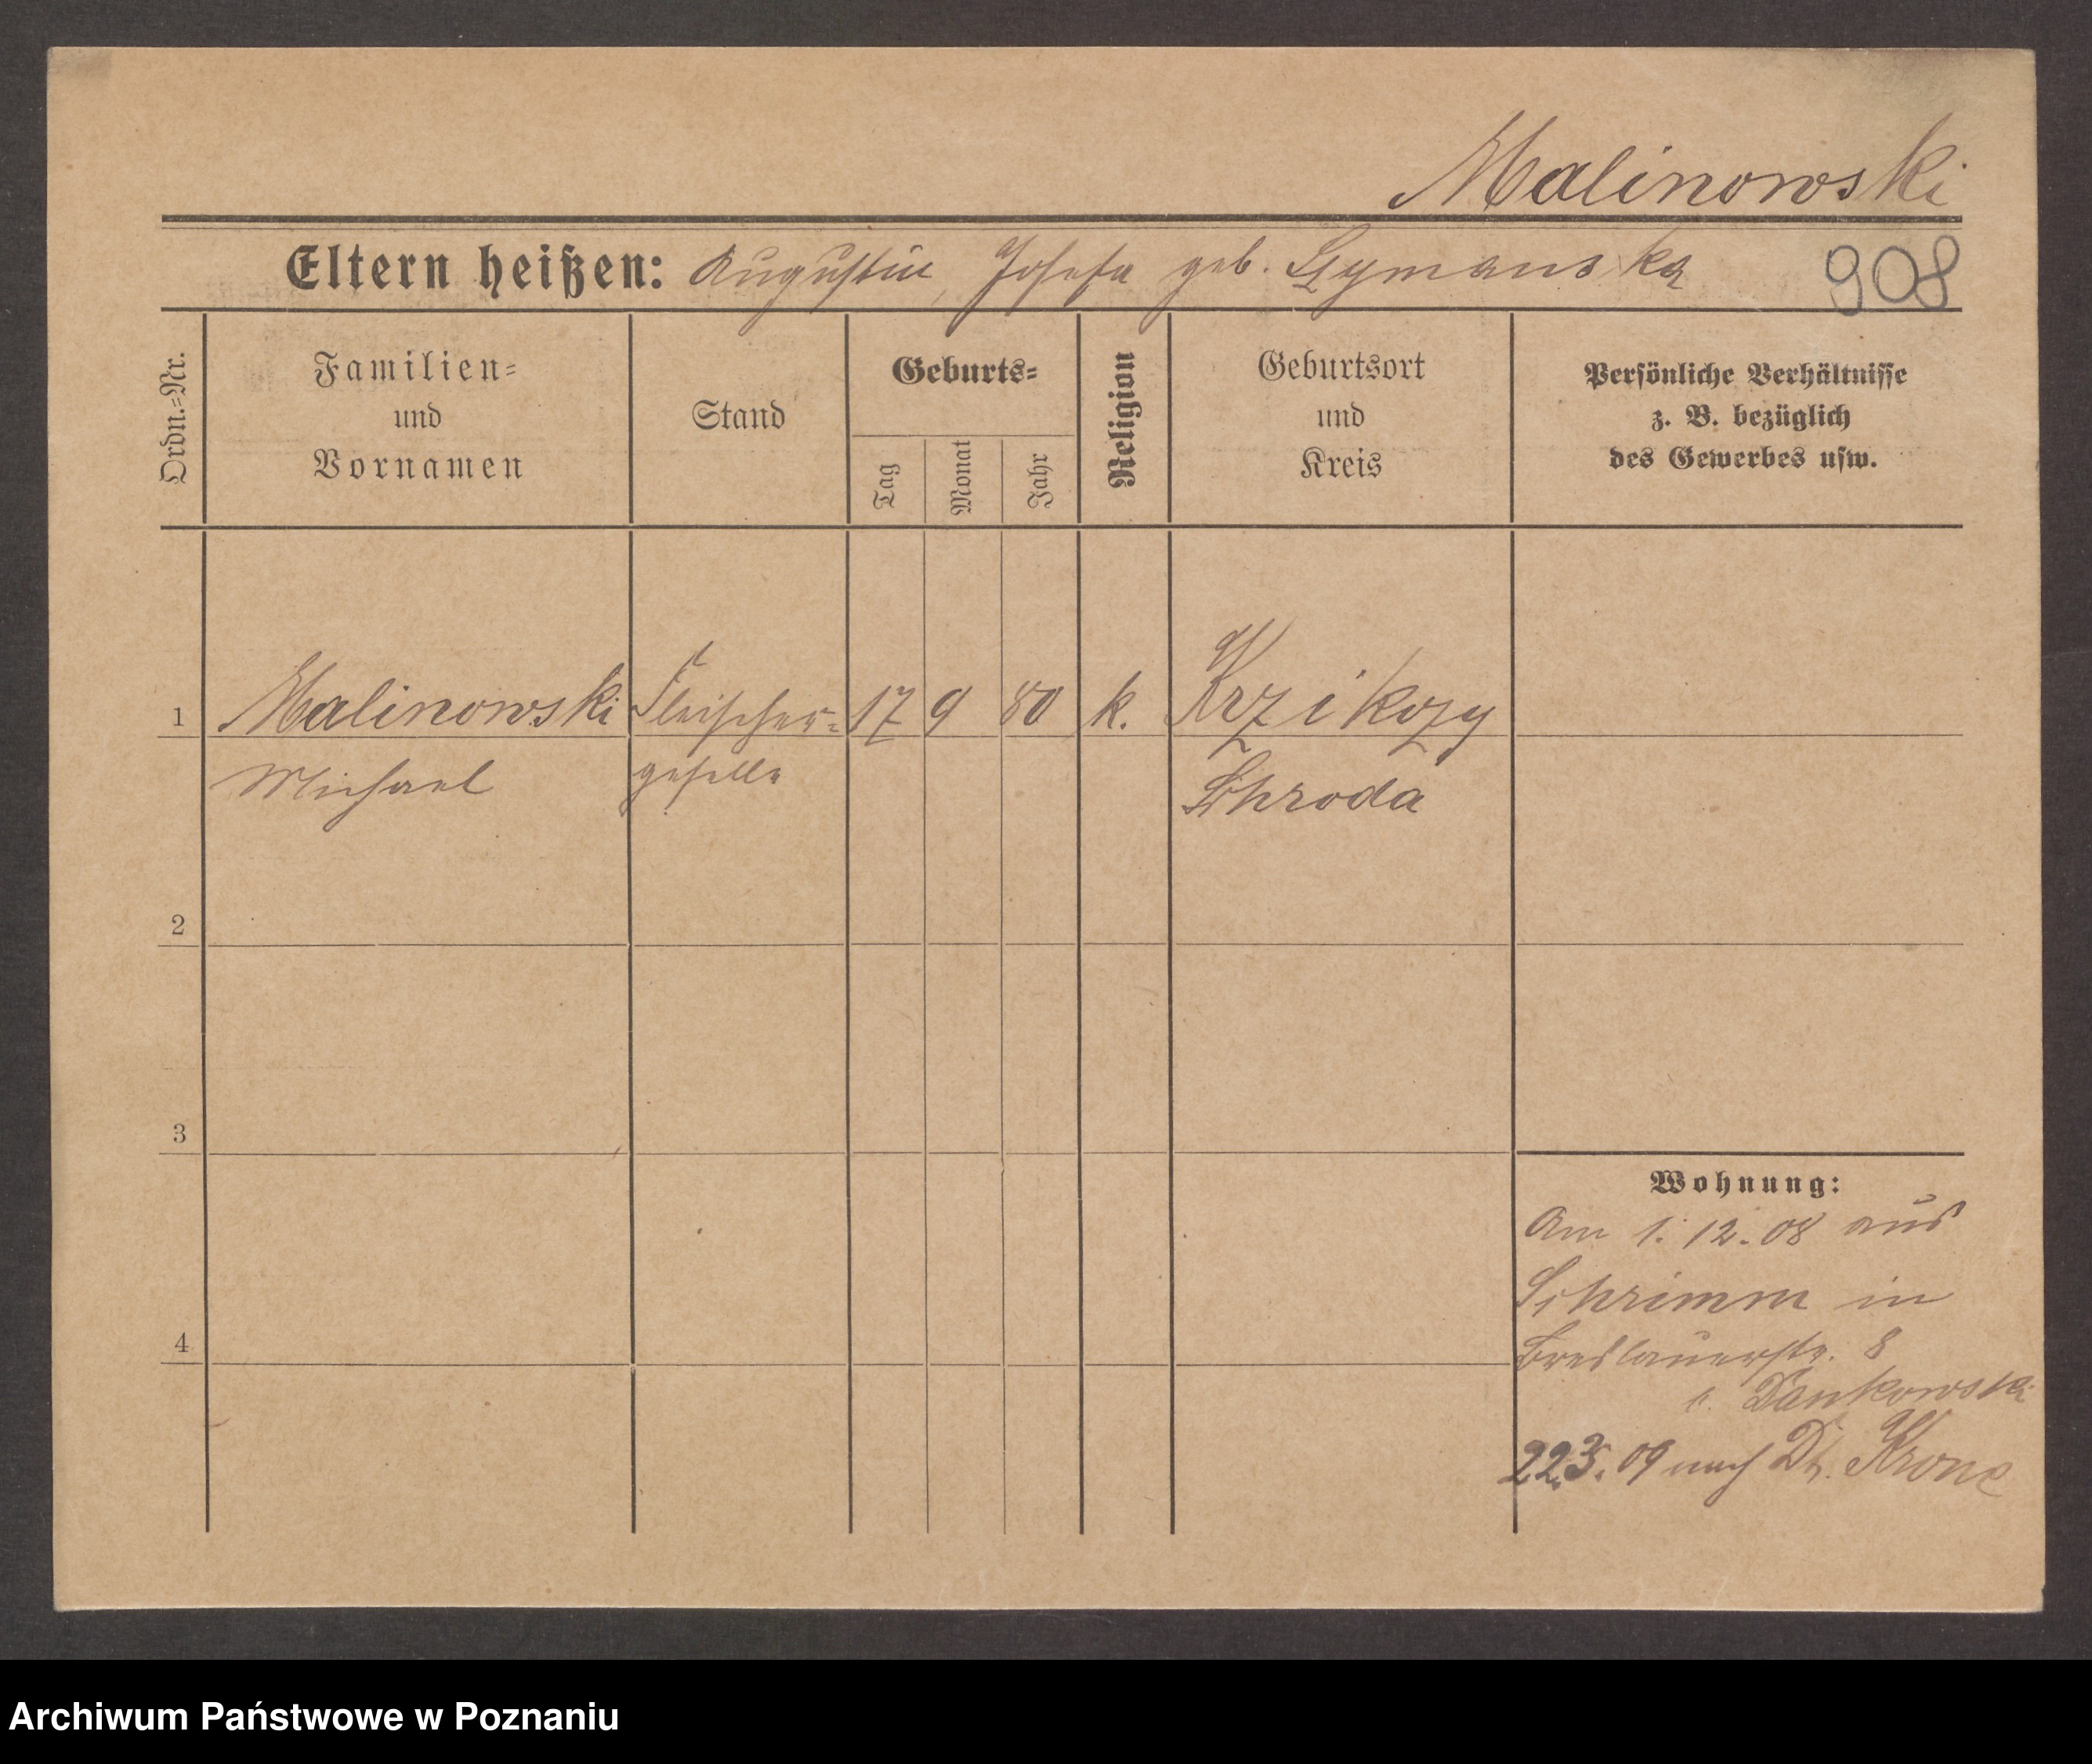 Malinowski
Eltern heißen: Augustin, Josefa geb. Szymanska 908
Ordn.-Nr.
Familien-
und
Vornamen
Stand
Geburts-
Tag
Monat
Jahr
Religion
Geburtsort
und
Kreis
Persönliche Verhältnisse
z. B. bezüglich
des Gewerbes usw.
1 Malinowski Fleischer- 17 9 80 k.
Michael geselle Schroda
2
3
4
Wohnung:
Am 1.12.08 aus
Schrimm in
Breslauerstr. 8
Dankowski
22.3.09 nach Dt. Krone
Archiwum Państwowe w Poznaniu